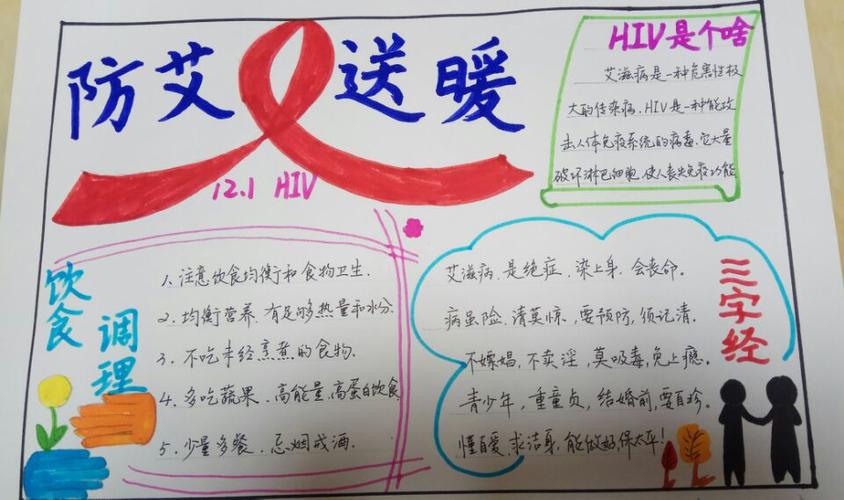 防艾送暖
12.1 HIV
HIV是个啥
艾滋病是一种危害性极
大的传染病，HIV是一种能攻
击人体免疫系统的病毒，它大量
破坏淋巴细胞，使人丧失免疫功能
饮食
调理
1、注意饮食均衡和食物卫生.
2、均衡营养、有足够热量和水分.
3、不吃未经烹煮的食物.
4、多吃蔬果、高能量、高蛋白饮食
5、少量多餐、忌烟戒酒.
三字经
艾滋病，是绝症，染上身，会丧命.
病虽险，请莫惊，要预防，须记清.
不嫖娼，不卖淫，莫吸毒，免上瘾。
青少年，重童贞，结婚前，要自珍。
懂自爱，求洁身，能做好，保太平！